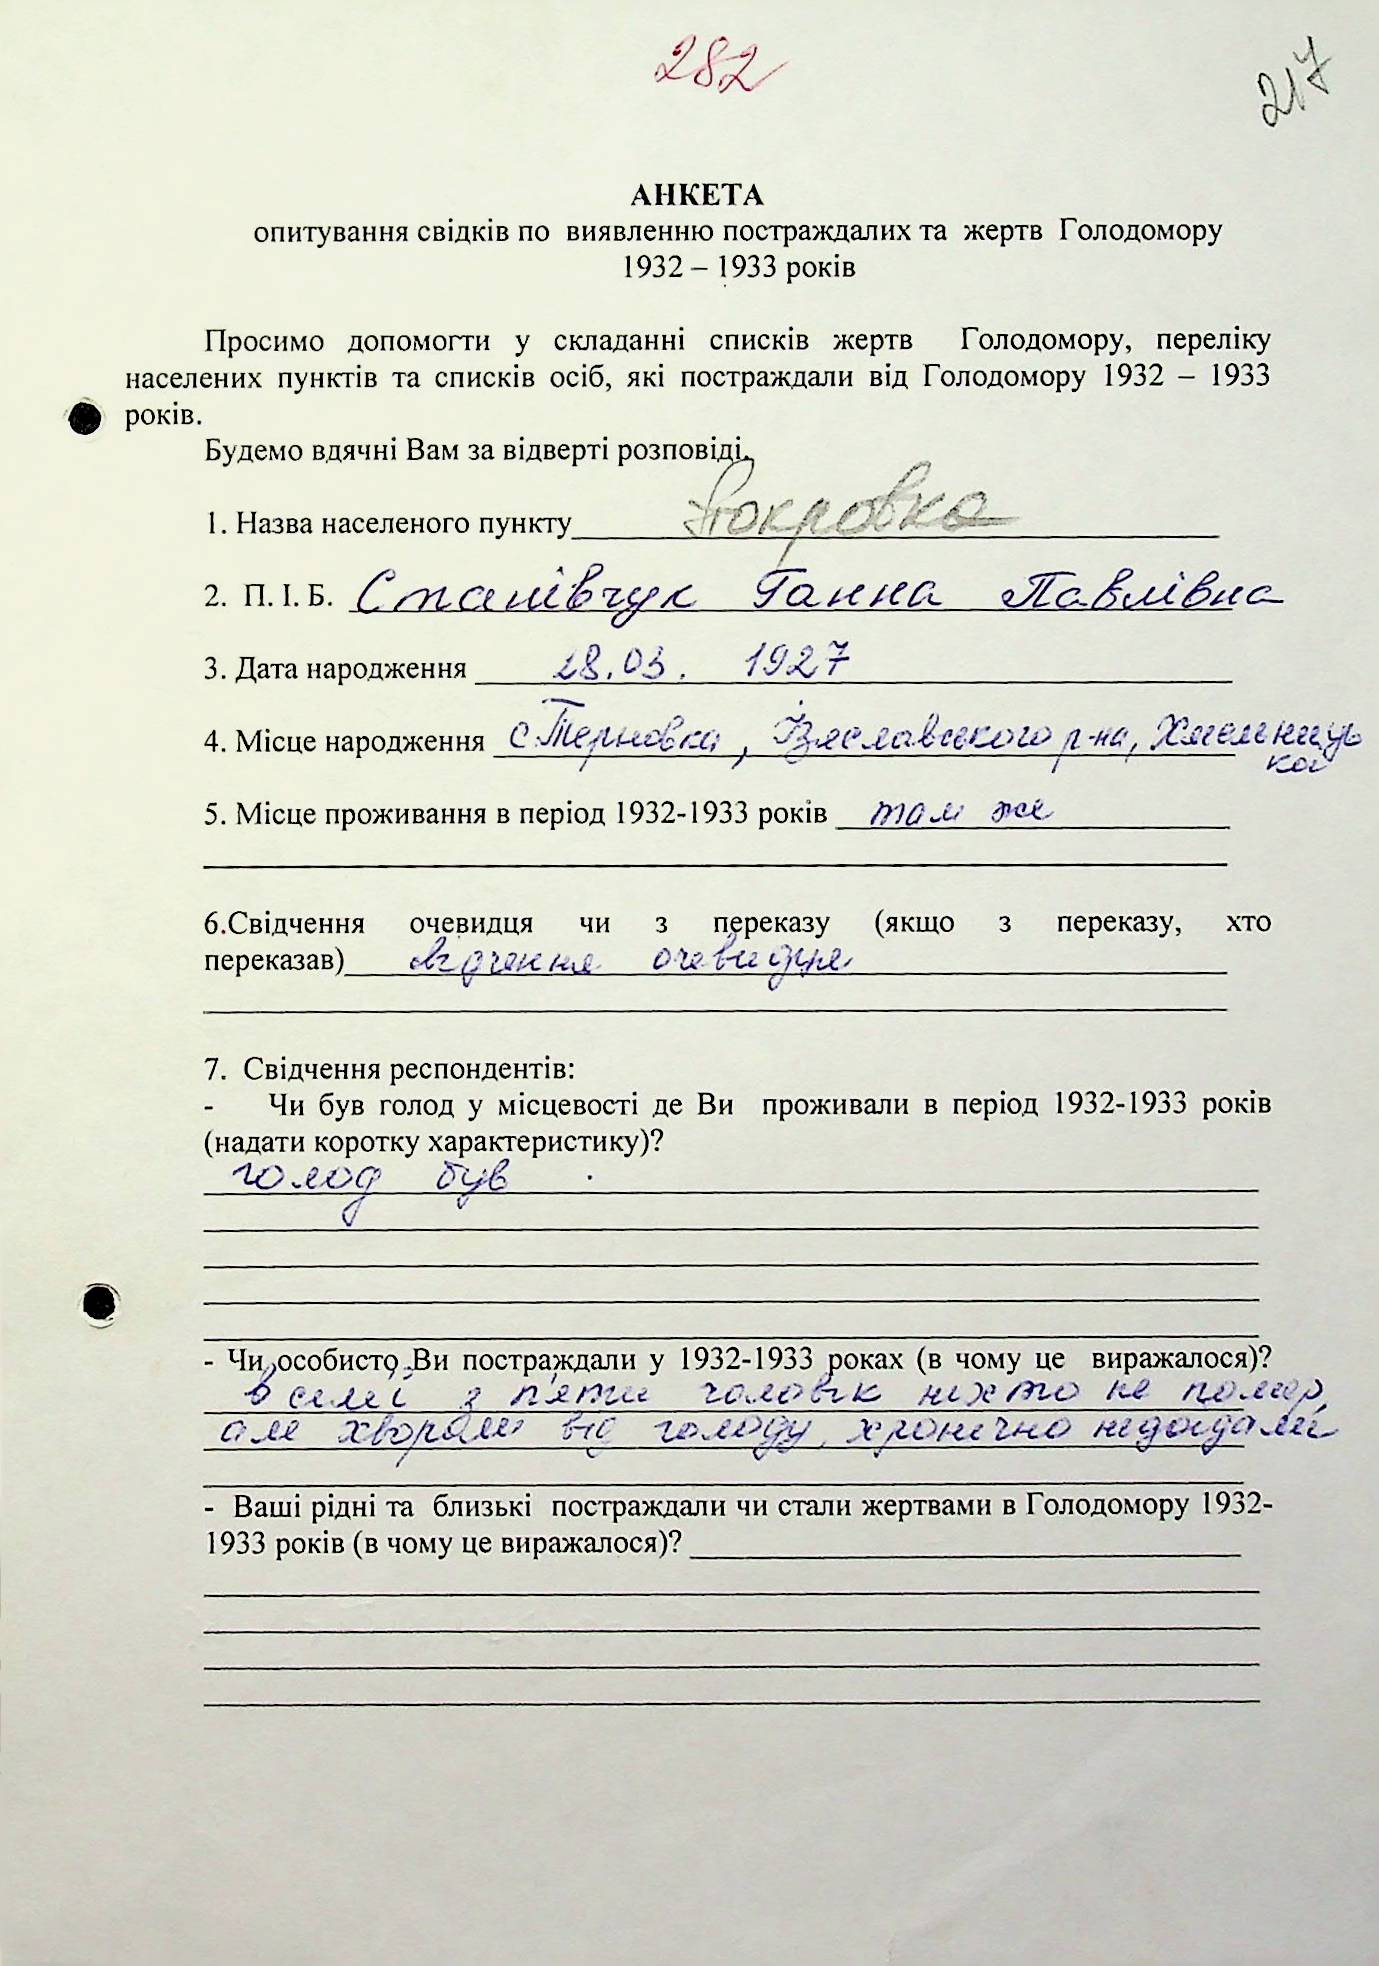 282
217
АНКЕТА
опитування свідків по виявленню постраждалих та жертв Голодомору
1932 – 1933 років
Просимо допомогти у складанні списків жертв Голодомору, переліку
населених пунктів та списків осіб, які постраждали від Голодомору 1932 – 1933
років.
Будемо вдячні Вам за відверті розповіді.
1. Назва населеного пункту Покровка
2. П. І. Б. Станівчук Ганна Павлівна
3. Дата народження 28.03. 1927
4. Місце народження с. Терновка, Ізяславського р-на, Хмельниць
кої
5. Місце проживання в період 1932-1933 років там же
6.Свідчення очевидця чи з переказу (якщо з переказу, хто
переказав) свідчення очевидця
7. Свідчення респондентів:
- Чи був голод у місцевості де Ви проживали в період 1932-1933 років
(надати коротку характеристику)?
голод був
- Чи особисто Ви постраждали у 1932-1933 роках (в чому це виражалося)?
в сем'ї з п'яти чоловік ніхто не помер,
але хворали від голоду, хронічно недоїдали
- Ваші рідні та близькі постраждали чи стали жертвами в Голодомору 1932-
1933 років (в чому це виражалося)?